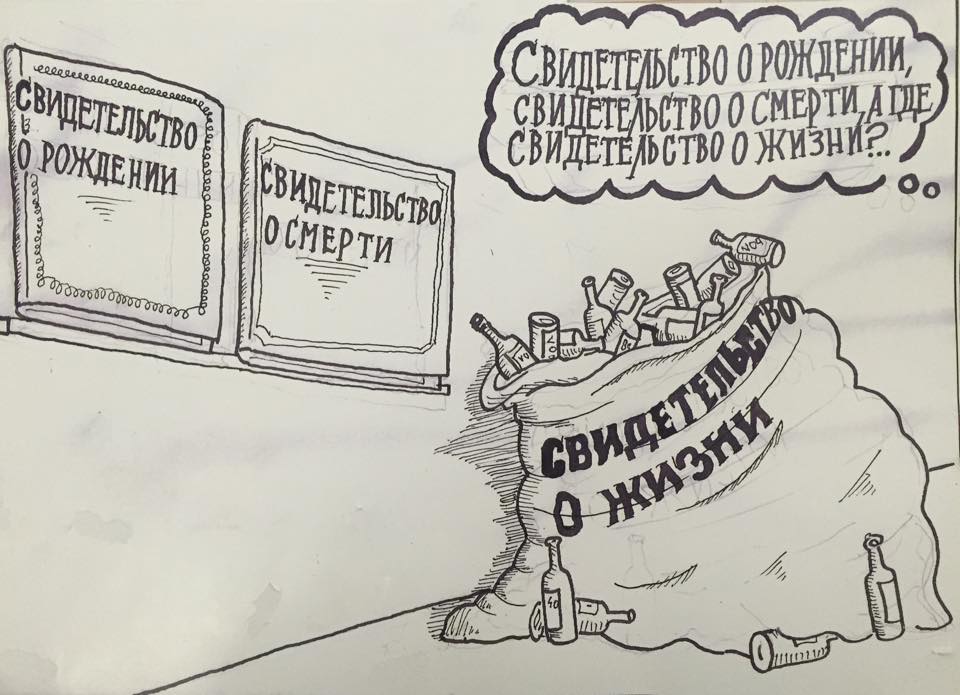 СВИДЕТЕЛЬСТВО
О РОЖДЕНИИ
СВИДЕТЕЛЬСТВО
О СМЕРТИ
СВИДЕТЕЛЬСТВО О РОЖДЕНИИ,
СВИДЕТЕЛЬСТВО О СМЕРТИ, А ГДЕ
СВИДЕТЕЛЬСТВО О ЖИЗНИ?..
СВИДЕТЕЛЬСТВО
О ЖИЗНИ
40